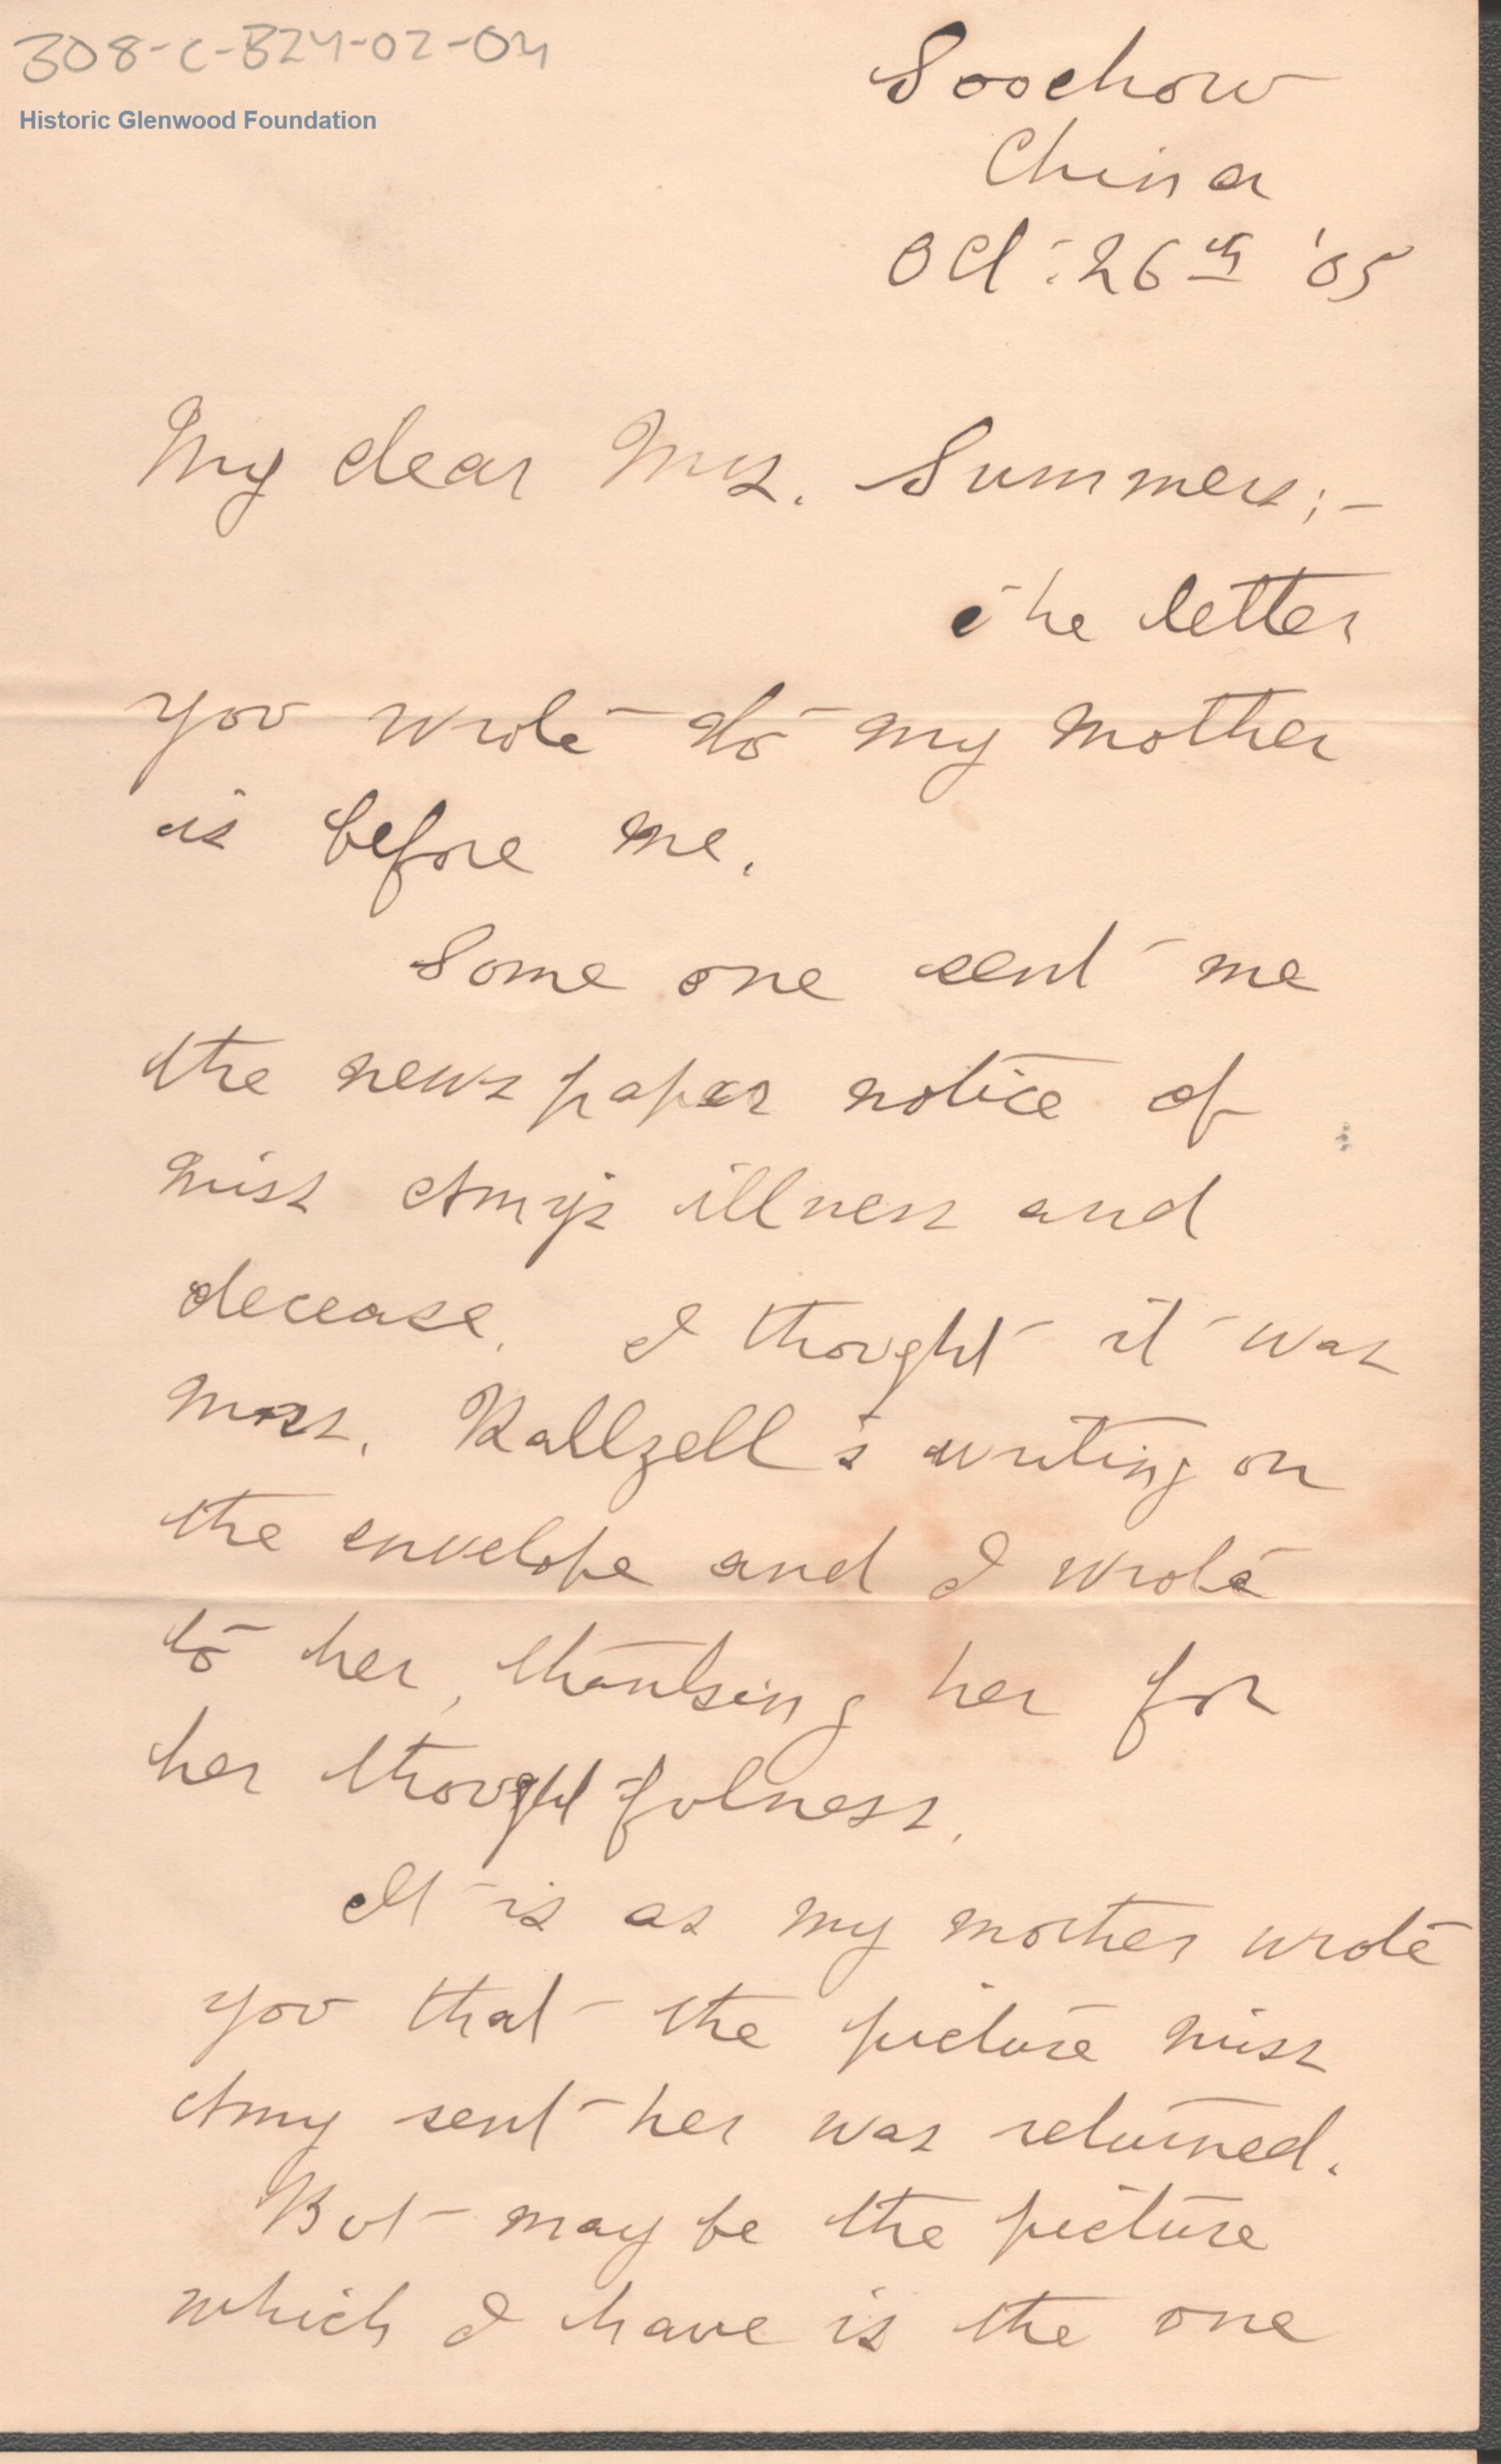 308-C-B24-02-04
Historic Glenwood Foundation
Soochow
China
Oct: 26th '05
My dear Mrs. Summers;-
The letter
you wrote to my mother
is before me.
Some one sent me
the newspaper notice of
Miss Amy's illness and
decease. I thought it was
Mrs. Kallzell's writing on
the envelope and I wrote
to her, thanking her for
her thoughtfulness.
It is as my mother wrote
you that the picture Miss
Amy sent her was returned.
But may be the picture
which I have is the one